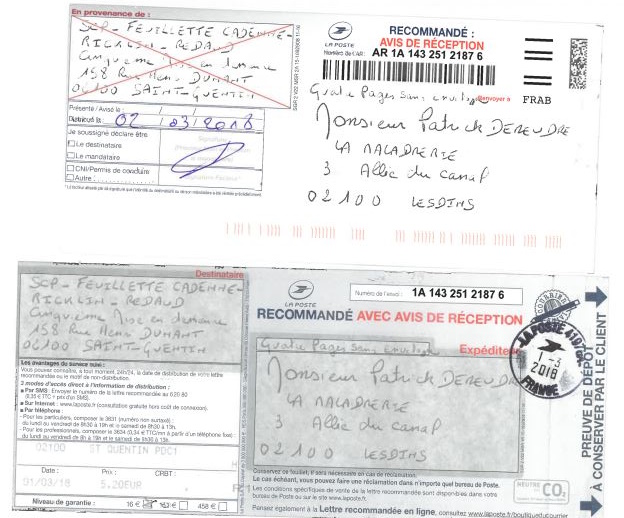 En provenance de :
SCP - FEUILLETTE CADENNE-
RICKLIN - REDAUD
Cinquième Mise en demeure
158 Rue Henri DUNANT
02100 SAINT-QUENTIN
Présenté / Avisé le : / /
Distribué le : 02 / 03 / 2018
Je soussigné déclare être
Le destinataire
Le mandataire
CNI/Permis de conduire
Autre :
LA POSTE
RECOMMANDÉ :
AVIS DE RÉCEPTION
Numéro de l'AR : AR 1A 143 251 2187 6
Renvoyer à FRAB
Quatre Pages Sans enveloppe
Monsieur Patrick DEREUDRE
LA MALADRERIE
3 Allée du canal
02100 LESDINS
Destinataire
SCP - FEUILLETTE CADENNE-
RICKLIN - REDAUD
Cinquième Mise en demeure
158 Rue Henri DUNANT
02100 SAINT-QUENTIN
Les avantages du service suivi :
Vous pouvez connaître, à tout moment, 24h/24, la date de distribution de votre lettre
recommandée ou le motif de non-distribution.
3 modes d'accès direct à l'information de distribution :
Par SMS : Envoyer le numéro de la lettre recommandée au 6 20 80
(0,35 € TTC + prix d'un SMS).
Sur Internet : www.laposte.fr (consultation gratuite hors coût de connexion).
Par téléphone :
- Pour les particuliers, composer le 3631 (numéro non surtaxé)
du lundi au vendredi de 8h à 19h et le samedi de 8h30 à 13h.
- Pour les professionnels, composer le 3634 (0,34 € TTC/mn à partir d'un téléphone fixe)
du lundi au vendredi de 8h à 19h et le samedi de 8h30 à 13h.
02100 ST QUENTIN PDC1
Date : Prix : CRBT :
01/03/18 5.20EUR
Niveau de garantie : 16 € 153 € 458 €
LA POSTE
Numéro de l'envoi : 1A 143 251 2187 6
RECOMMANDÉ AVEC AVIS DE RÉCEPTION
Expéditeur
Quatre Pages Sans enveloppe
Monsieur Patrick DEREUDRE
LA MALADRERIE
3 Allée du canal
02100 LESDINS
LA POSTE
1-3
2018
FRANCE
Conservez ce feuillet, il sera nécessaire en cas de réclamation.
Le cas échéant, vous pouvez faire une réclamation dans n'importe quel bureau de Poste.
Les conditions spécifiques de vente de la lettre recommandée sont disponibles dans votre
bureau de Poste ou sur le site www.laposte.fr.
Pensez également à la Lettre recommandée en ligne, consultez www.laposte.fr/boutiqueducourrier
CO2
PREUVE DE DÉPÔT
À CONSERVER PAR LE CLIENT